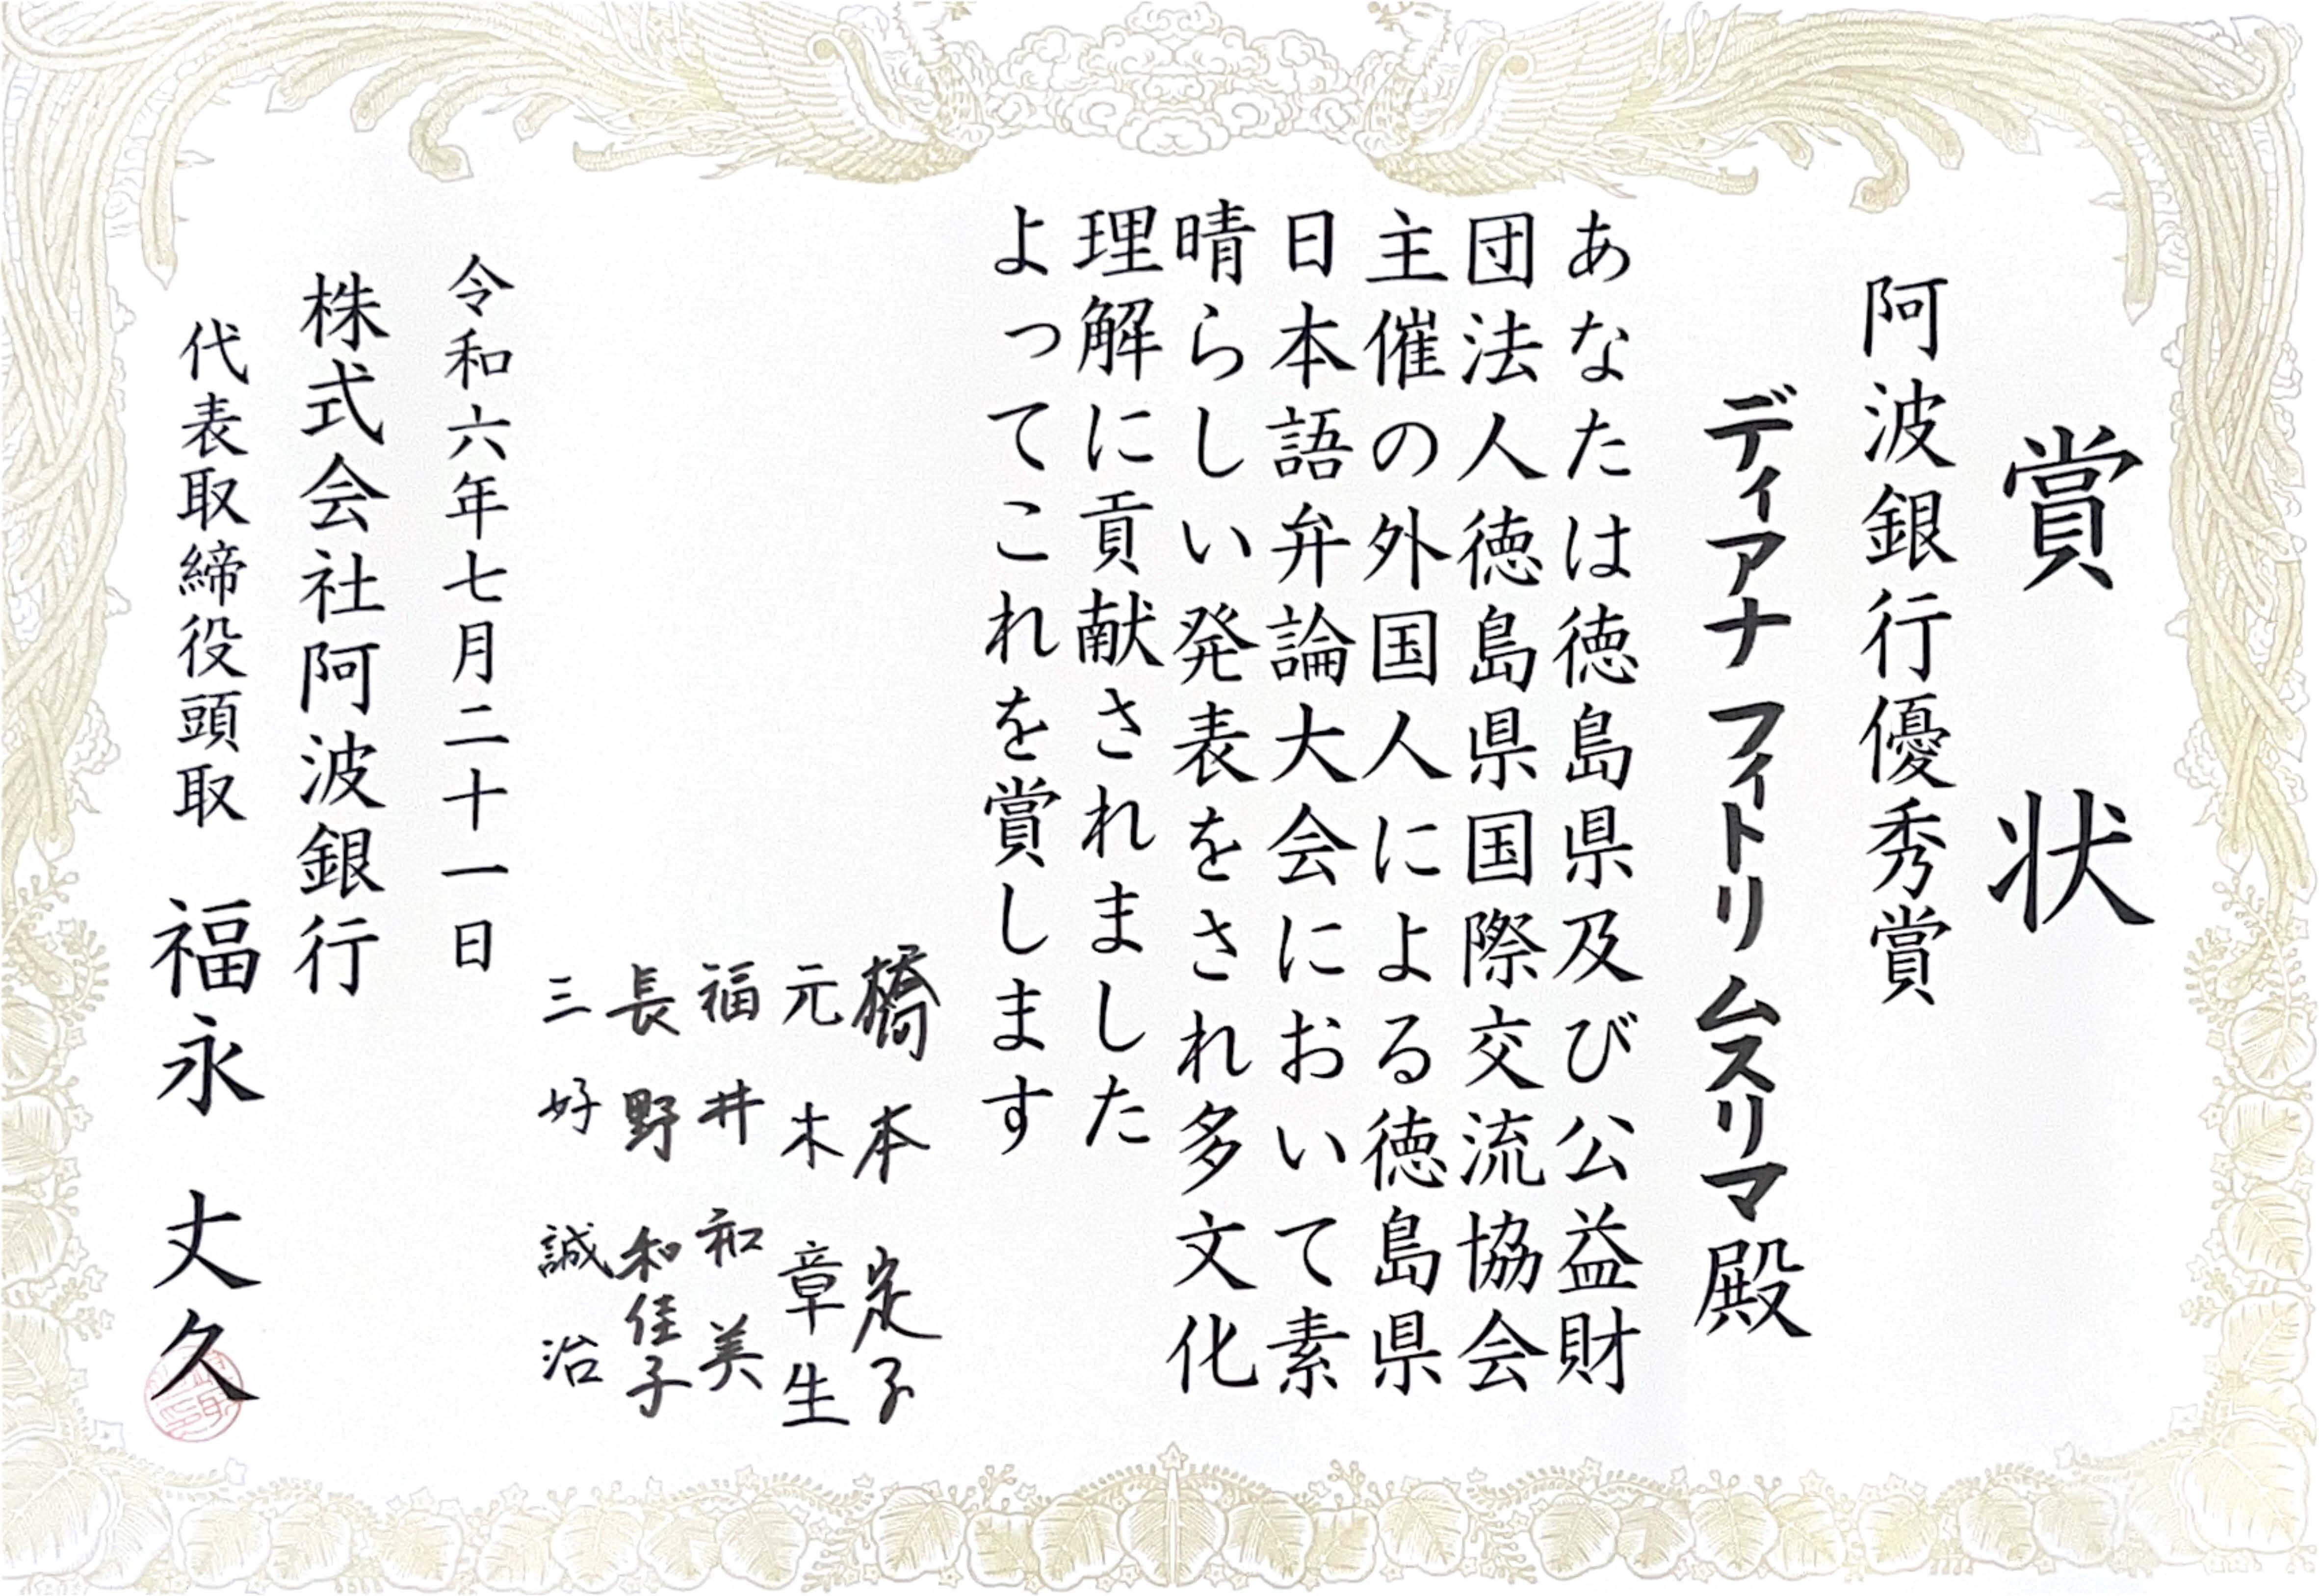 賞状
阿波銀行優秀賞
ディアナ フィトリ ムスリマ 殿
あなたは徳島県及び公益財
団法人徳島県国際交流協会
主催の外国人による徳島県
日本語弁論大会において素
晴らしい発表をされ多文化
理解に貢献されました
よってこれを賞します
橋本 定子
元木 章生
福井 和美
長野 和佳子
三好 誠治
令和六年七月二十一日
株式会社阿波銀行
代表取締役頭取 福永 丈久